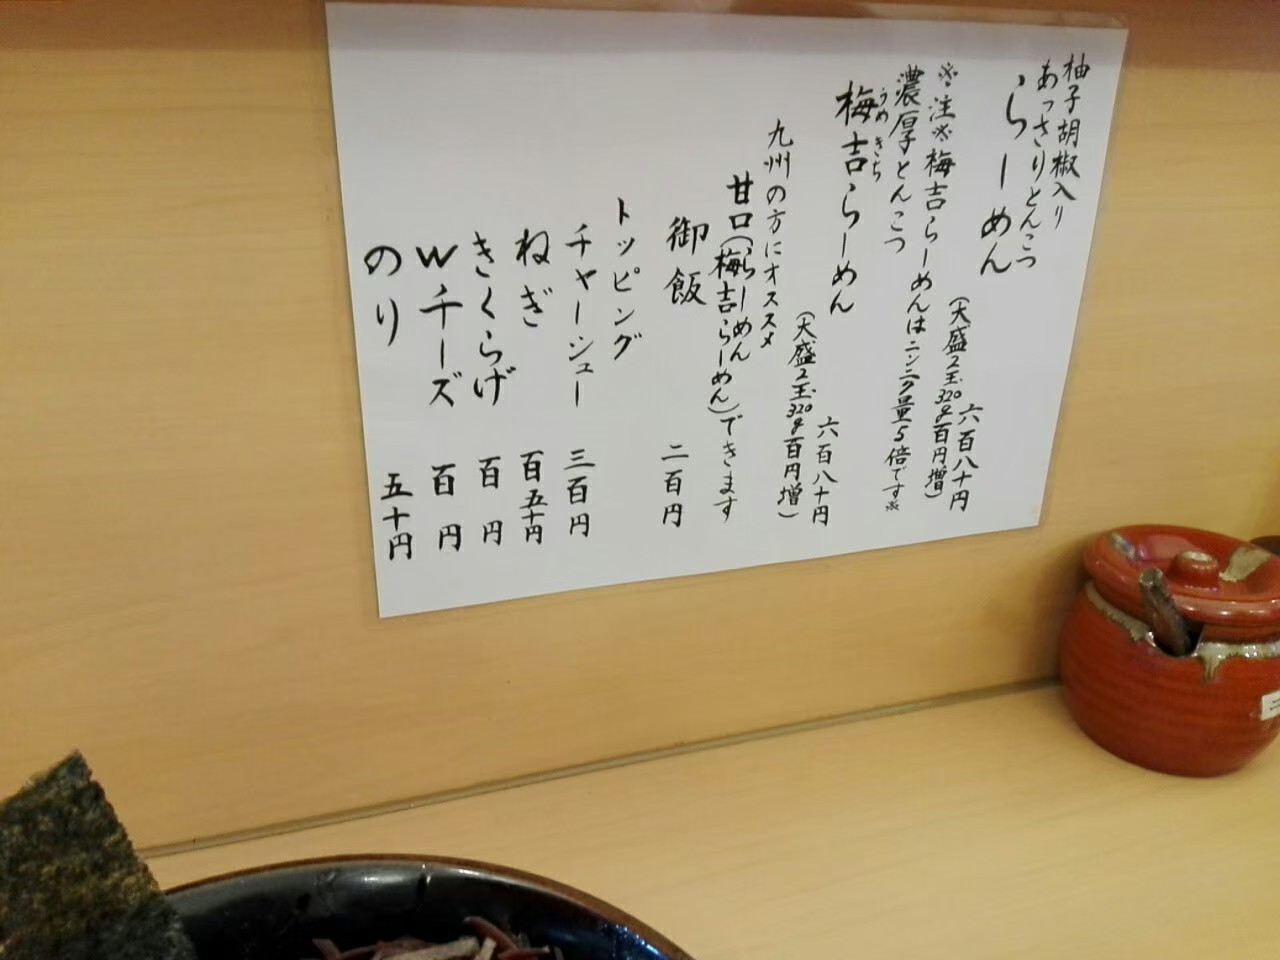 柚子胡椒入り
あっさりとんこつ
らーめん
六百八十円
(大盛2玉320g百円増)
※注※梅吉らーめんはニンニク量5倍です※
濃厚とんこつ
うめきち
梅吉らーめん
六百八十円
(大盛2玉320g百円増)
九州の方にオススメ
甘口(らーめん
梅吉らーめん)できます
御飯 二百円
トッピング
チャーシュー 三百円
ねぎ 百五十円
きくらげ 百円
Wチーズ 百円
のり 五十円